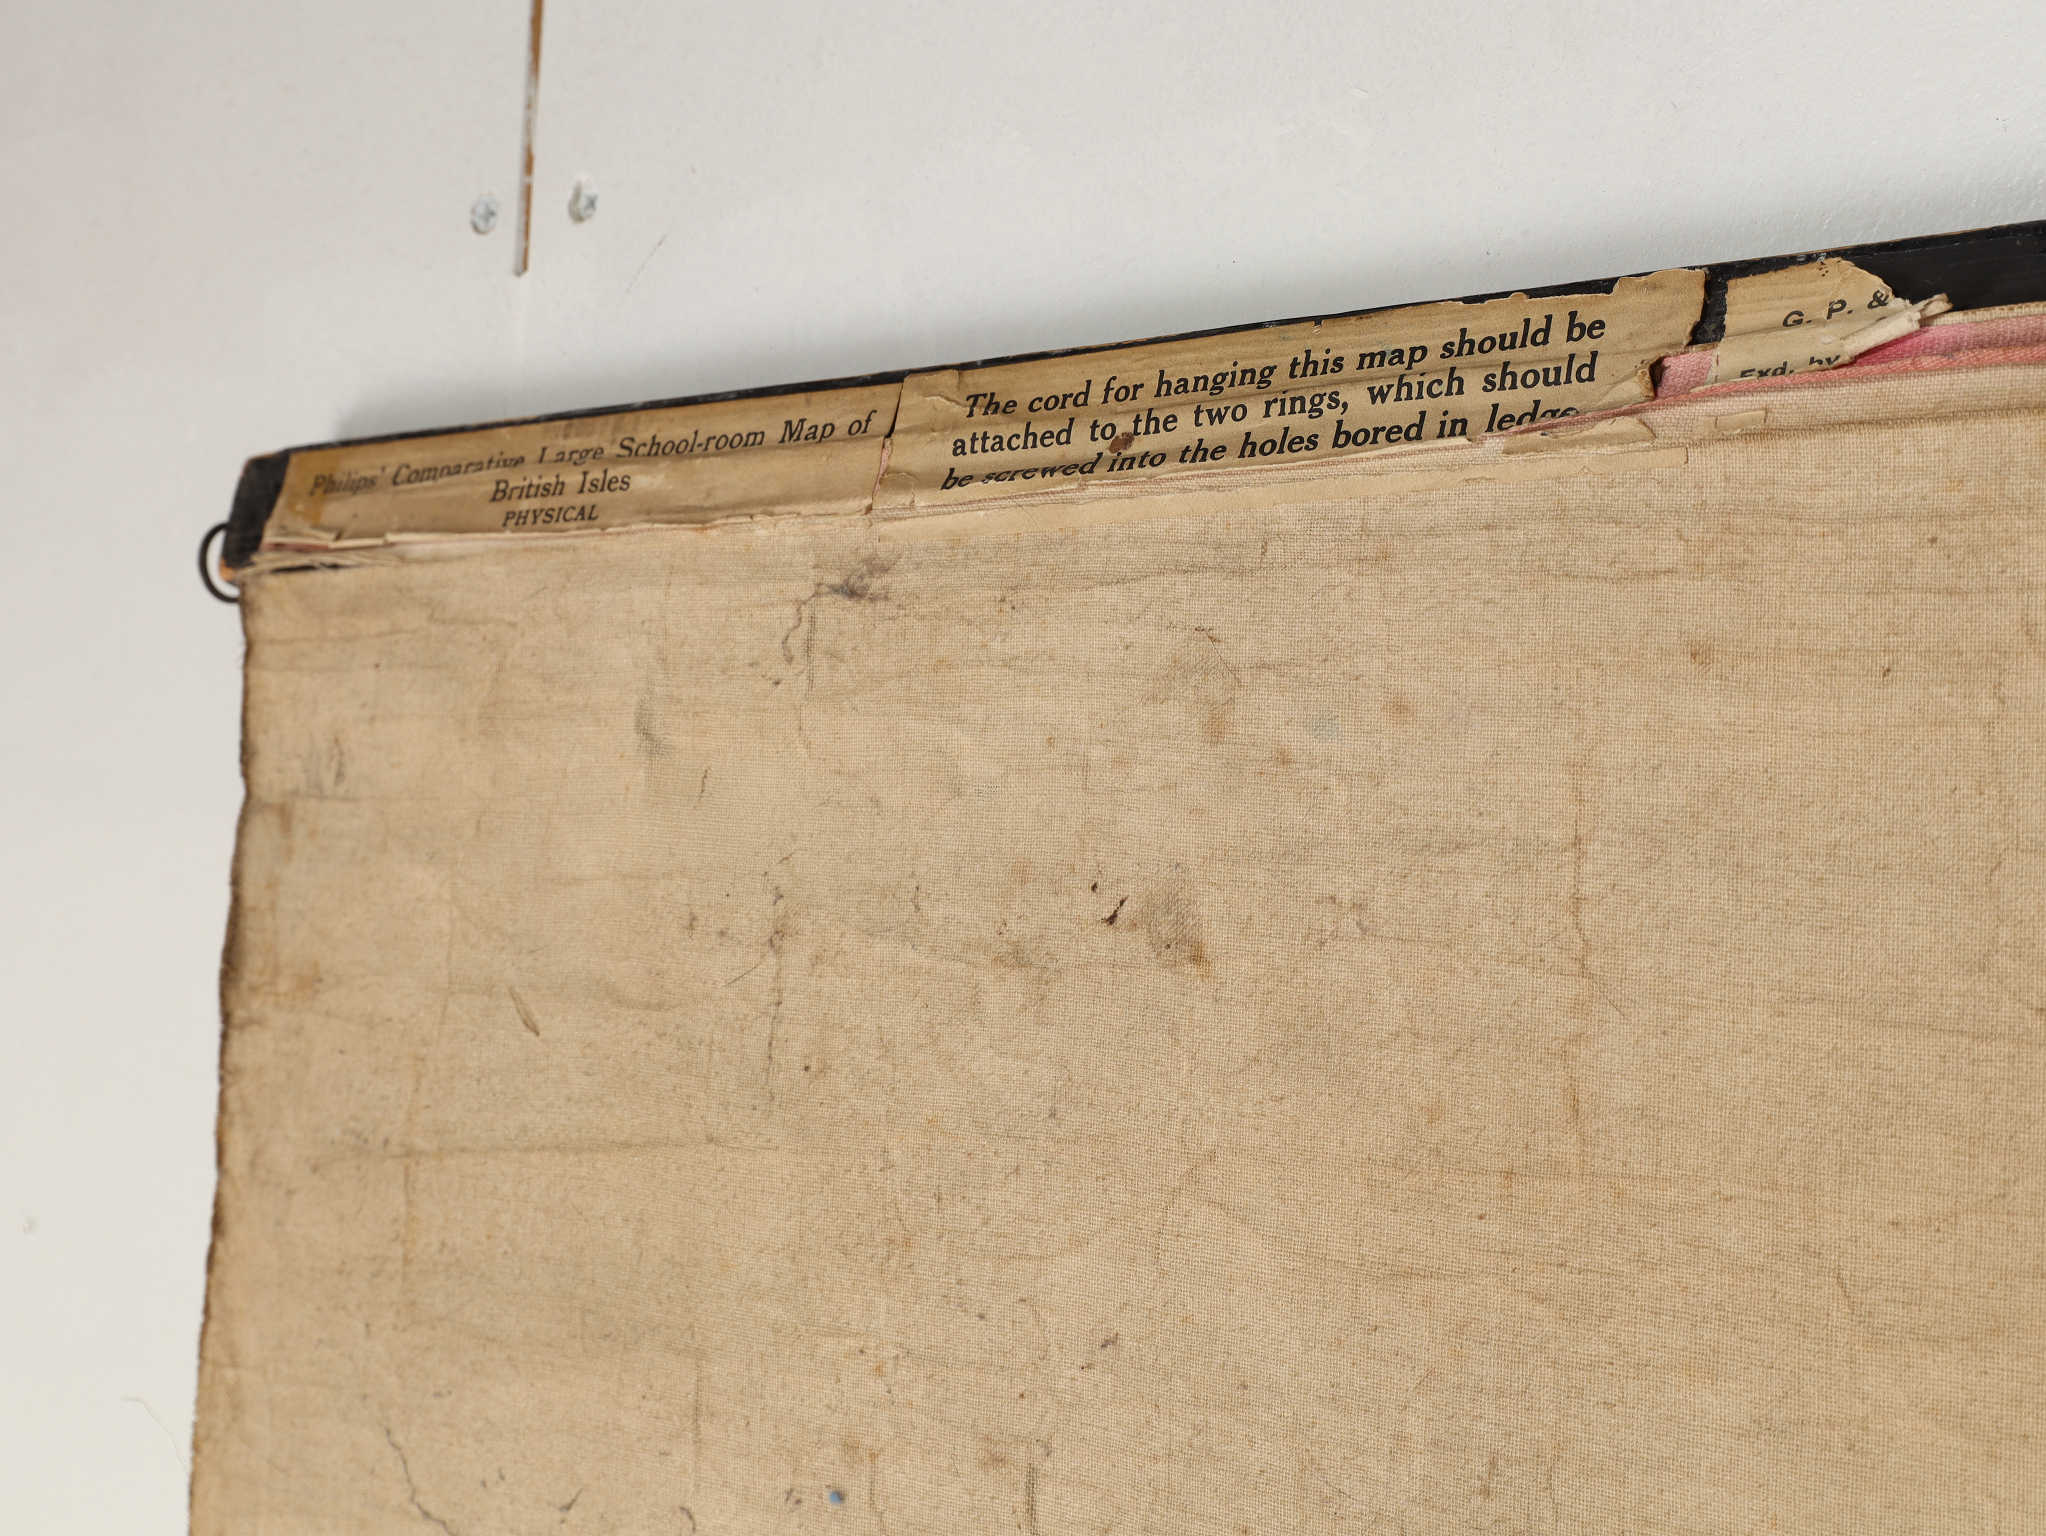 Philips' Comparative Large School-room Map of
British Isles
PHYSICAL
The cord for hanging this map should be
attached to the two rings, which should
be screwed into the holes bored in ledge
G. P. &
Exd. by